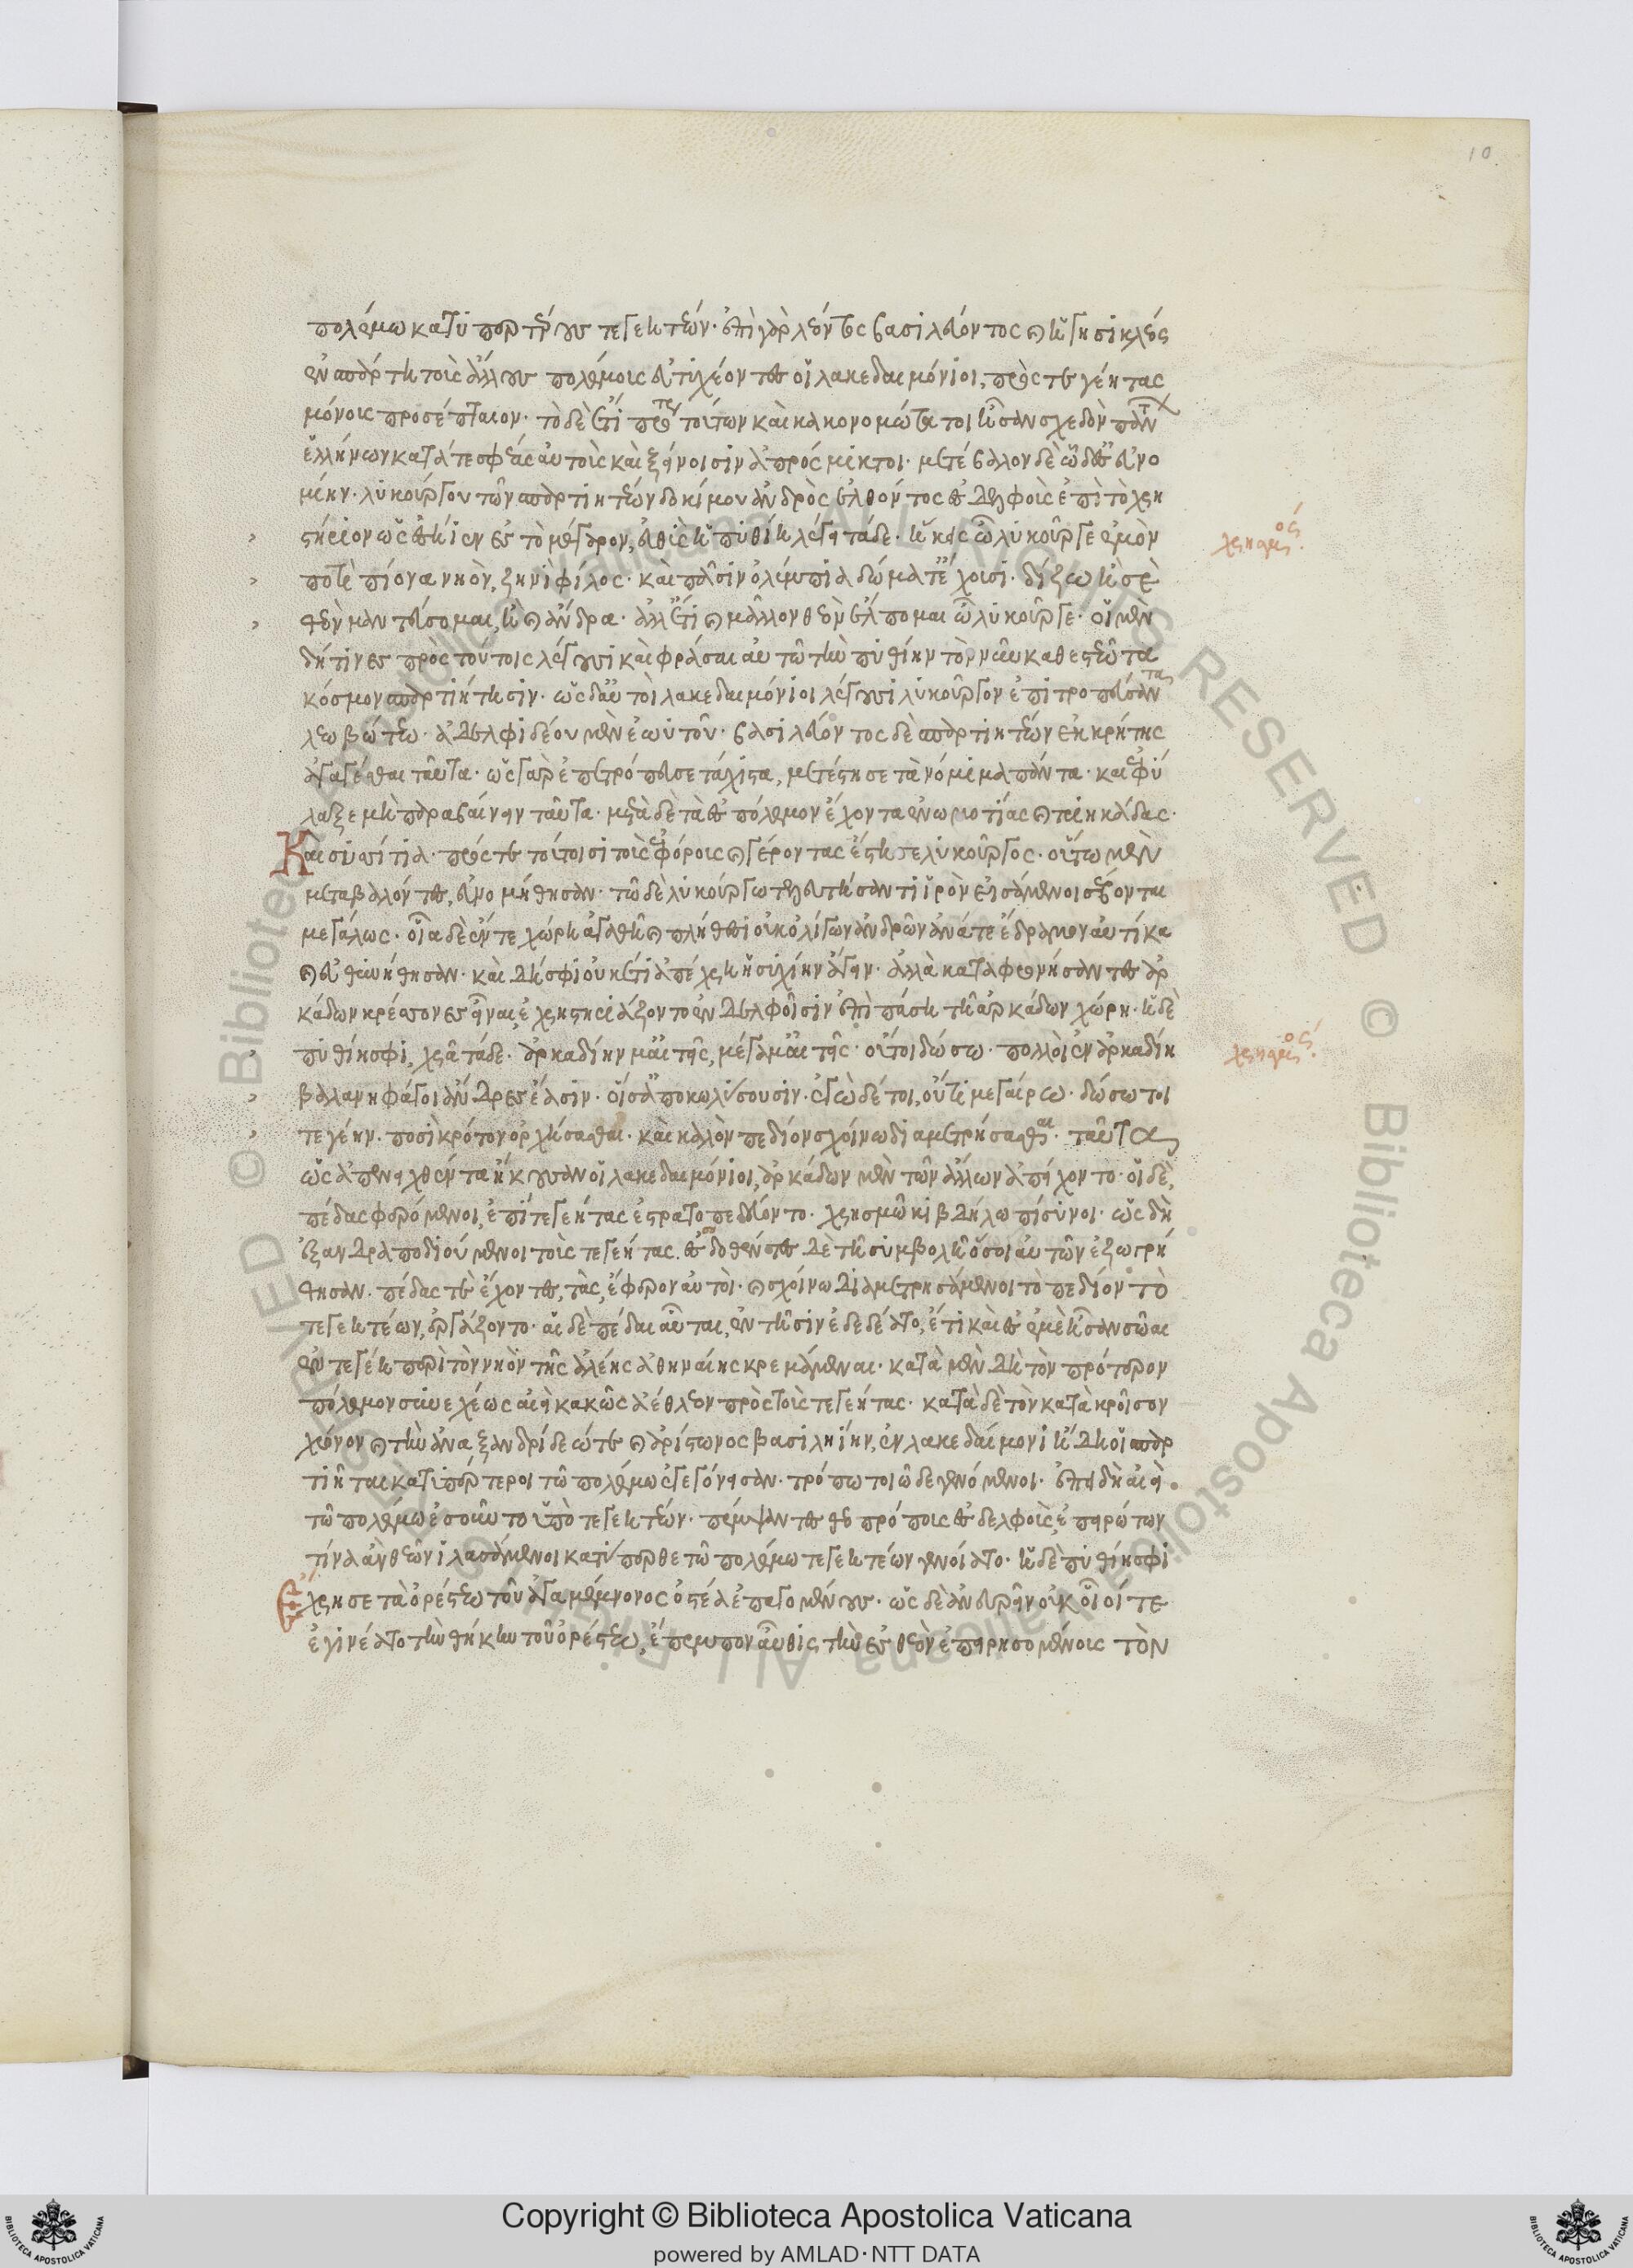 10
πολέμω κατυπερτέρους τεγεητέων· ἐπὶ γὰρ λέοντος βασιλεύοντος καὶ ἡγησικλέος
ἐν σπάρτη τοὺς ἄλλους πολέμους εὐτυχέοντες οἱ λακεδαιμόνιοι, πρὸς τεγεήτας
μόνους προσέπταιον· τὸ δὲ ἔτι πρότερον τούτων καὶ κακονομώτατοι ἦσαν σχεδὸν πάντων
ἑλλήνων κατά τε σφέας αὐτοὺς καὶ ξείνοισιν ἀπρόσμικτοι· μετέβαλον δὲ ὧδε ἐς εὐνο
μίην· λυκούργου τῶν σπαρτιητέων δοκίμου ἀνδρὸς ἐλθόντος ἐς δελφοὺς ἐπὶ τὸ χρη
στήριον ὡς ἐσήιεν ἐς τὸ μέγαρον, εὐθὺς ἡ πυθίη λέγει τάδε· ἥκεις ὦ λυκοῦργε ἐμὸν
χρησμός
ποτὶ πίονα νηὸν, ζηνὶ φίλος· καὶ πᾶσιν ὀλύμπια δώματ' ἔχουσι· δίζω ἤ σε
θεὸν μαντεύσομαι, ἢ καὶ ἄνδρα· ἀλλ' ἔτι καὶ μᾶλλον θεὸν ἔλπομαι ὦ λυκοῦργε· οἱ μὲν
δή τινες πρὸς τούτοις λέγουσι καὶ φράσαι αὐτῶ τὴν πυθίην τὸν νῦν καθεστεῶτα
κόσμον σπαρτιήτησιν· ὡς δ' αὐτοὶ λακεδαιμόνιοι λέγουσι λυκοῦργον ἐπιτροπεύσαντα
λεωβώτεω· ἀδελφιδέου μὲν ἑωυτοῦ· βασιλεύοντος δὲ σπαρτιητέων ἐκ κρήτης
ἀγαγέσθαι ταῦτα· ὡς γὰρ ἐπετρόπευσε τάχιστα, μετέστησε τὰ νόμιμα πάντα· καὶ ἐφύ
λαξε μὴ παραβαίνειν ταῦτα· μετὰ δὲ τὰ ἐς πόλεμον ἔχοντα ἐνωμοτίας καὶ τριηκάδας·
Καὶ συσσίτια· πρός τε τούτοισι τοὺς ἐφόρους καὶ γέροντας ἔστησε λυκοῦργος· οὕτω μὲν
μεταβαλόντες, εὐνομήθησαν· τῶ δὲ λυκούργω τελευτήσαντι ἱρὸν εἱσάμενοι σέβονται
μεγάλως· οἷα δὲ ἔν τε χώρη ἀγαθῆ καὶ πλήθεϊ οὐκ ὀλίγων ἀνδρῶν ἀνά τε ἔδραμον αὐτίκα
καὶ εὐθενήθησαν· καὶ δή σφι οὐκέτι ἀπέχρη ἡσυχίην ἄγειν· ἀλλὰ καταφρονήσαντες ἀρ
κάδων κρέσσονες εἶναι, ἐχρηστηριάζοντο ἐν δελφοῖσιν ἐπὶ πάση τῆ ἀρκάδων χώρη· ἡ δὲ
πυθίη σφι, χρᾶ τάδε· ἀρκαδίην μ' αἰτεῖς, μέγα μ' αἰτεῖς· οὔτοι δώσω· πολλοὶ ἐν ἀρκαδίη
χρησμός
βαλανηφάγοι ἄνδρες ἔασιν· οἵ σ' ἀποκωλύσουσιν· ἐγὼ δέ τοι, οὔτι μεγαίρω· δώσω τοι
τεγέην· ποσὶ κρότον ὀρχήσασθαι· καὶ καλὸν πεδίον σχοίνω διαμετρήσασθαι· ταῦτα
ὡς ἀπενειχθέντα ἤκουσαν οἱ λακεδαιμόνιοι, ἀρκάδων μὲν τῶν ἄλλων ἀπείχοντο· οἱ δὲ,
πέδας φερόμενοι, ἐπὶ τεγεήτας ἐστρατοπεδεύοντο· χρησμῶ κιβδήλω πίσυνοι· ὡς δὴ
ἐξανδραποδιούμενοι τοὺς τεγεήτας. ἑσσωθέντες δὲ τῆ συμβολῆ ὅσοι αὐτῶν ἐζωγρή
θησαν. πέδας τε ἔχοντες, τὰς, ἐφέροντο αὐτοὶ· καὶ σχοίνω διαμετρησάμενοι τὸ πεδίον τὸ
τεγεητέων, ἐργάζοντο· αἱ δὲ πέδαι αὗται, ἐν τῆσιν ἐδεδέατο, ἔτι καὶ ἐς ἐμὲ ἦσαν σῶαι
ἐν τεγέη περὶ τὸν νηὸν τῆς ἀλέης ἀθηναίης κρεμάμεναι· κατὰ μὲν δὴ τὸν πρότερον
πόλεμον συνεχέως αἰεὶ κακῶς ἀέθλεον πρὸς τοὺς τεγεήτας· κατὰ δὲ τὸν κατὰ κροῖσον
χρόνον καὶ τὴν ἀναξανδρίδεώ τε καὶ ἀρίστωνος βασιληίην, ἐν λακεδαίμονι ἤδη οἱ σπαρ
τιῆται κατυπέρτεροι τῶ πολέμω ἐγεγόνεσαν· τρόπω τοιῶδε γενόμενοι· ἐπειδὴ αἰεὶ
τῶ πολέμω ἑσσοῦντο ὑπὸ τεγεητέων· πέμψαντες θεοπρόπους ἐς δελφοὺς, ἐπειρώτων
τίνα ἂν θεῶν ἱλασάμενοι κατύπερθε τῶ πολέμω τεγεητέων γενοίατο· ἡ δὲ πυθίη σφι
ἔχρησε τὰ ὀρέστεω τοῦ ἀγαμέμνονος ὀστέα ἐπαγομένους· ὡς δὲ ἀνευρεῖν οὐκ οἷοί τε
ἐγινέατο τὴν θήκην τοῦ ὀρέστεω, ἔπεμπον αὖθις τὴν ἐς θεὸν ἐπειρησομένους τὸν
© Biblioteca Apostolica Vaticana ALL RIGHTS RESERVED
Copyright © Biblioteca Apostolica Vaticana
powered by AMLAD·NTT DATA